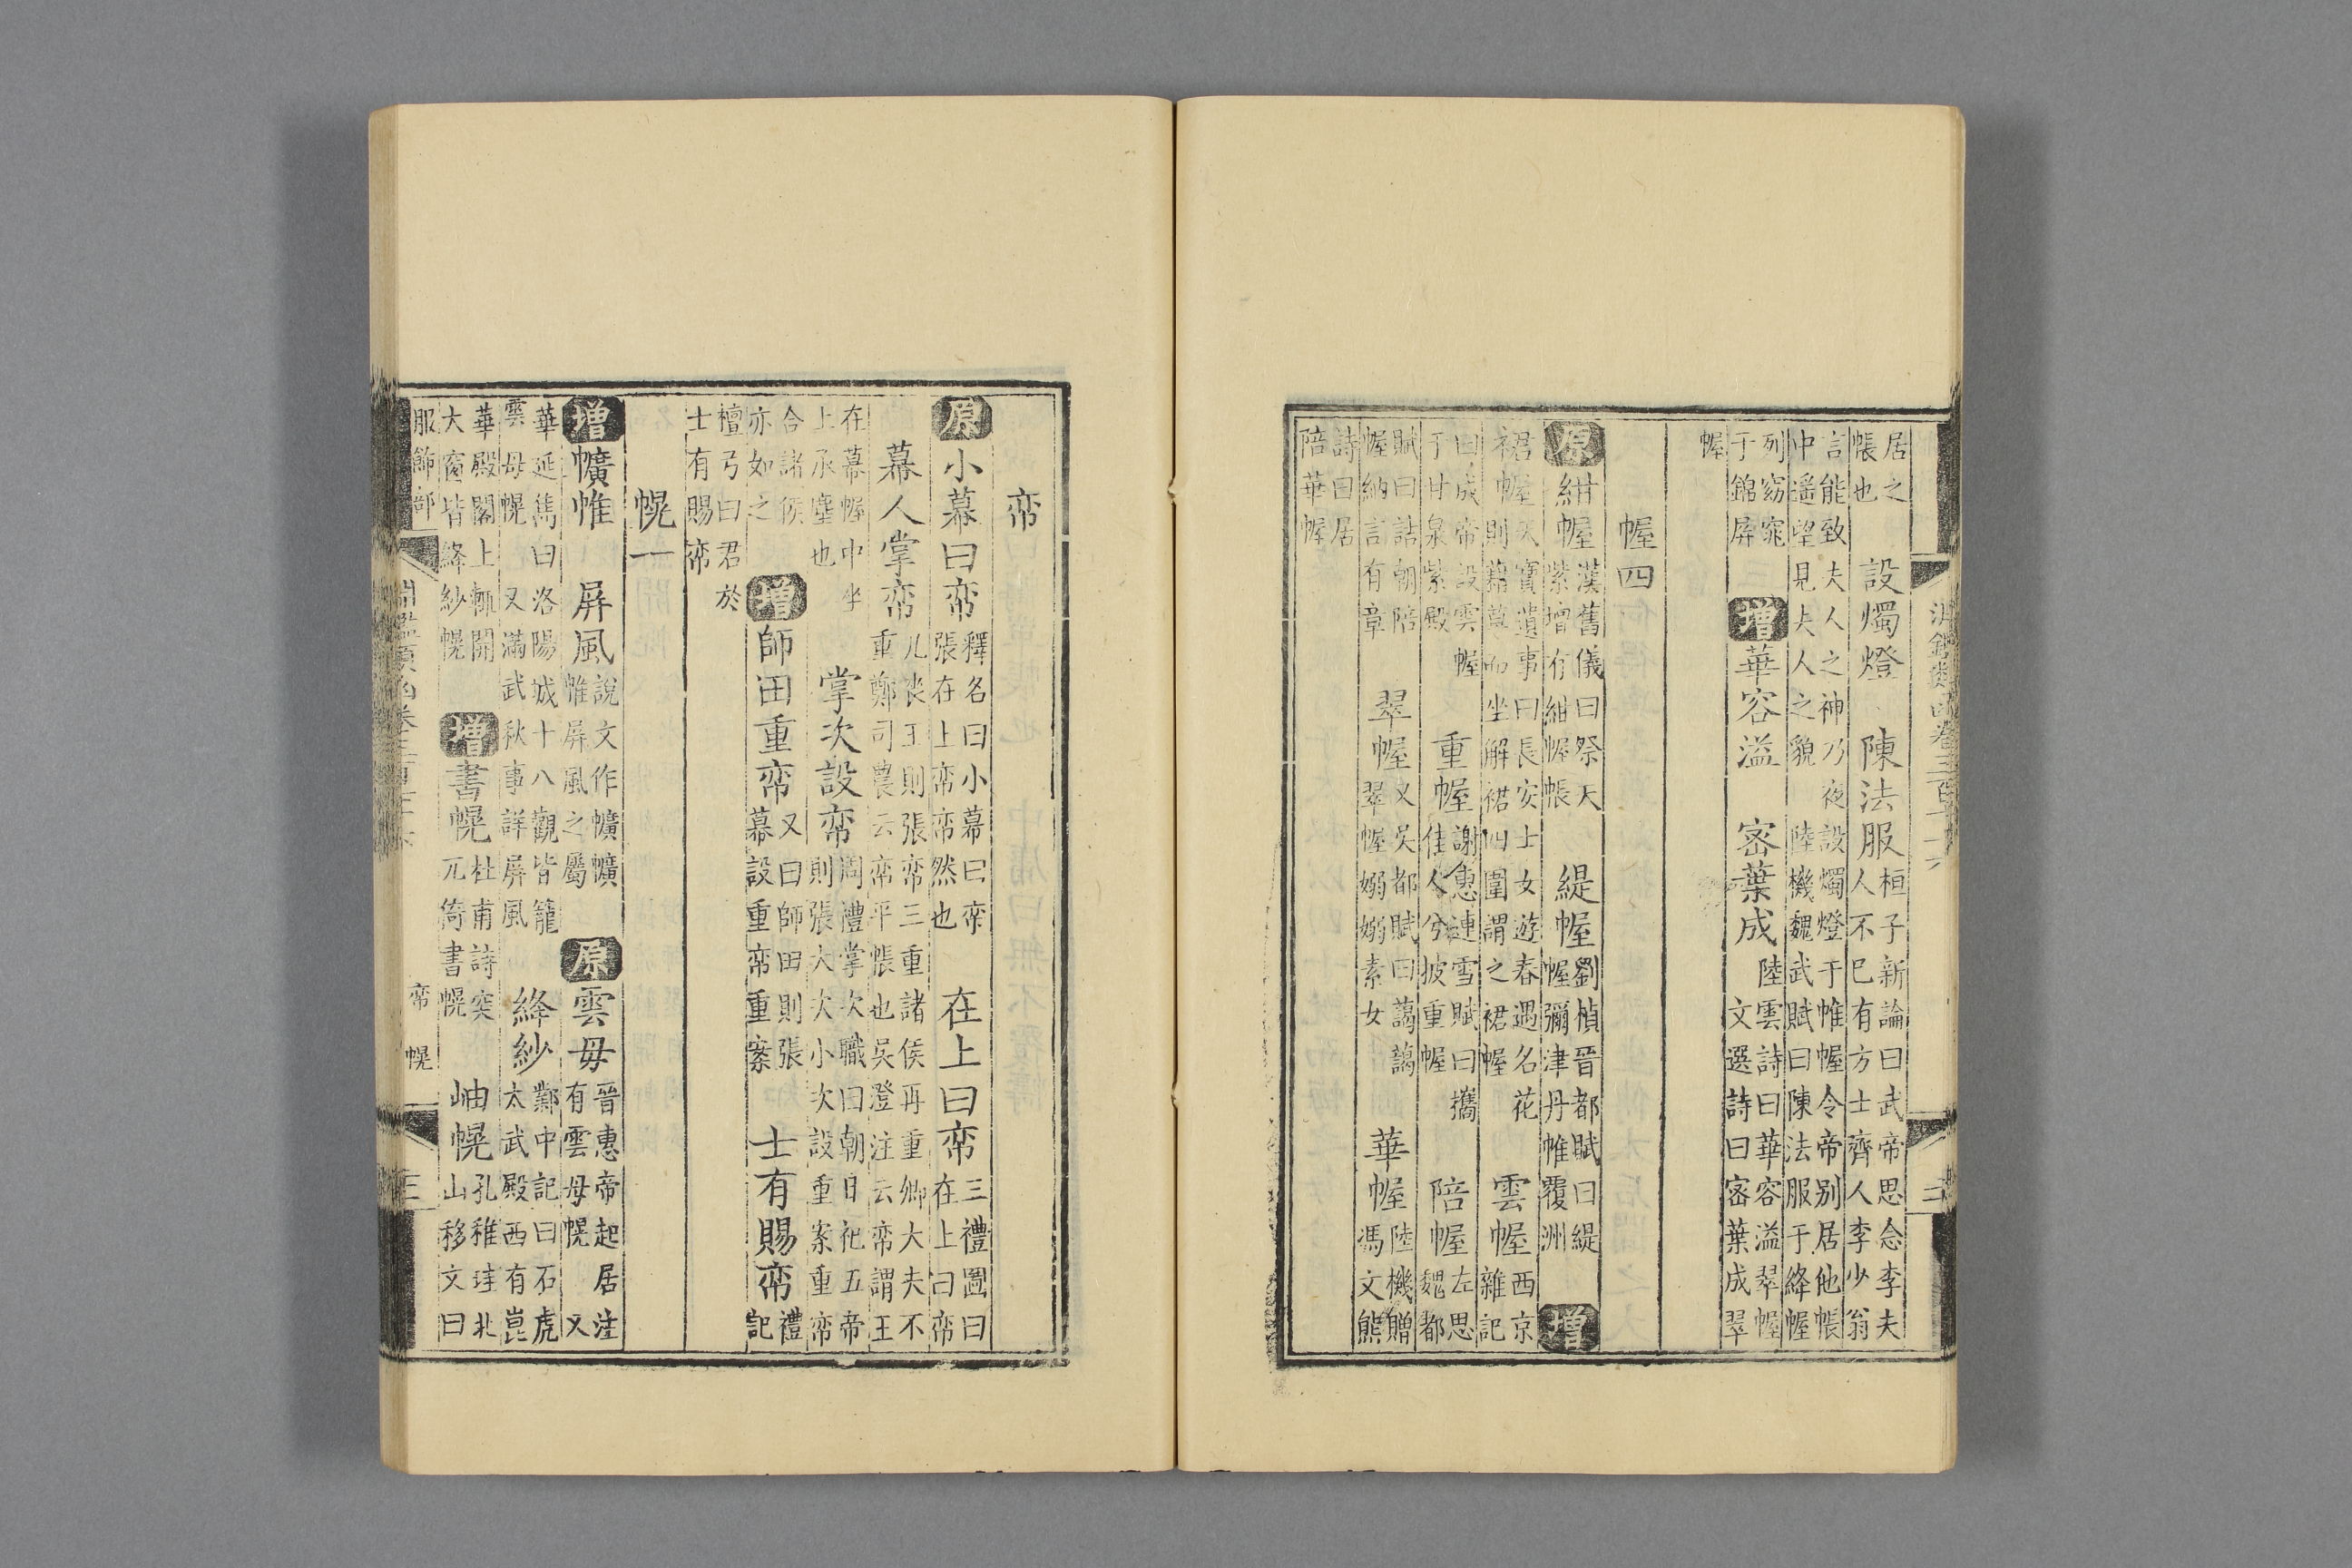 淵鑑類函卷三百七十六 二
居之
帳也 設燭燈 陳法服 桓子新論曰武帝思念李夫
人不已有方士齊人李少翁
言能致夫人之神乃夜設燭燈于帷幄令帝別居他帳
中遙望見夫人之貌 陸機魏武賦曰陳法服于絳幄
列窈窕
于錦屏 增華容溢 密葉成 陸雲詩曰華容溢翠幄
文選詩曰密葉成翠
幄
幄四
原紺幄 漢舊儀曰祭天
紫壇有紺幄帳 緹幄 劉楨晉都賦曰緹
幄彌津丹帷覆洲 增
裙幄 天寶遺事曰長安士女遊春遇名花
則藉草而坐解裙四圍謂之裙幄 雲幄 西京
雜記
曰成帝設雲幄
于甘泉紫殿 重幄 謝惠連雪賦曰攜
佳人兮披重幄 陪幄 左思
魏都
賦曰詰朝陪
幄納言有章 翠幄 又吳都賦曰藹藹
翠幄嫋嫋素女 華幄 陸機贈
馮文熊
詩曰居
陪華幄
帟
原小幕曰帟 釋名曰小幕曰帟
張在上帟帟然也 在上曰帟 三禮圖曰
在上曰帟
幕人掌帟 凡喪王則張帟三重諸侯再重卿大夫不
重鄭司農云帟平帳也吳澄注云帟謂王
在幕幄中坐
上承塵也 掌次設帟 周禮掌次職曰朝日祀五帝
則張大次小次設重帟重案
合諸侯
亦如之 增師田重帟 又曰師田則張
幕設重帟重案 士有賜帟 禮
記
檀弓曰君於
士有賜帟
幌一
增幌帷 屏風 說文作㡆㡆
帷屏風之屬 原雲母 晉惠帝起居注
有雲母幌 又
華延儁曰洛陽城十八觀皆籠
雲母幌 又滿武秋事詳屏風 絳紗 鄴中記曰石虎
太武殿西有崑
華殿閣上輒開
大窗皆絳紗幌 增書幌 杜甫詩突
兀倚書幌 岫幌 孔稚珪北
山移文曰
服飾部 淵鑑類函卷三百七十六 帟 幌 三